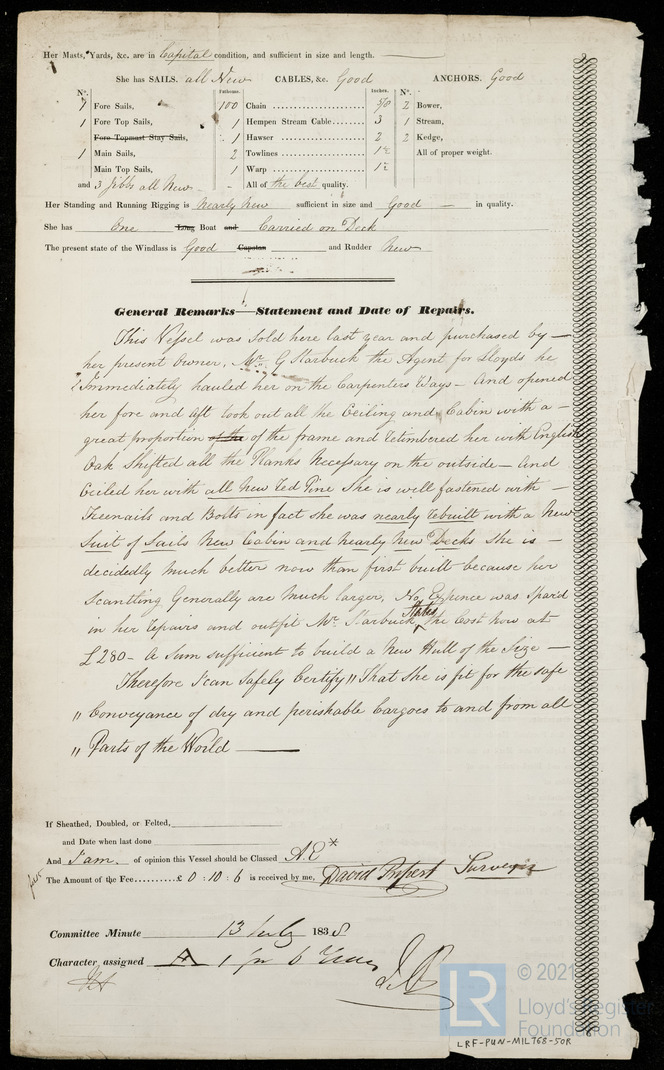 Her Masts, Yards, &c. are in Capital condition, and sufficient in size and length.
She has SAILS. all New CABLES, &c. Good ANCHORS. Good
N°. Fathoms. Inches. N°.
1 Fore Sails, 100 Chain 5/8 2 Bower,
1 Fore Top Sails, 1 Hempen Stream Cable 3 1 Stream,
Fore Topmast Stay Sails, 1 Hawser 2 2 Kedge,
1 Main Sails, 2 Towlines 1½ All of proper weight.
Main Top Sails, 1 Warp 1½
and 3 Jibbs all New - All of the best quality.
Her Standing and Running Rigging is Nearly New sufficient in size and Good in quality.
She has One Long Boat and Carried on Deck
The present state of the Windlass is Good Capstan and Rudder New
General Remarks—Statement and Date of Repairs.
This Vessel was Sold here last year and purchased by
her present Owner, Mr. G Starbuck the Agent for Lloyds he
Immediately hauled her on the Carpenters Ways - And opened
her fore and aft took out all the Ceiling and Cabin with a
great proportion of the of the frame and Retimbered her with English
Oak Shifted all the Planks Necessary on the outside - And
Ceiled her with all New Red Pine She is well fastened with
Treenails and Bolts in fact she was nearly Rebuilt with a New
Suit of Sails New Cabin and nearly New Decks She is
decidedly Much better now than first built because her
Scantling Generally are Much larger, No Expence was Spar'd
in her Repairs and outfit Mr. Starbuck States the Cost now at
£280 - A Sum sufficient to build a New Hull of the Size
Therefore I can Safely Certify " That she is fit for the safe
" Conveyance of dry and perishable Cargoes to and from all
" Parts of the World
If Sheathed, Doubled, or Felted,
and Date when last done
And I am of opinion this Vessel should be Classed Æ*
The Amount of the Fee £ 0 : 10 : 6 is received by me, David Surveyor
Committee Minute 13 July 1838
Character assigned A 1 for 6 Years
© 2021
LR Lloyd's Register
Foundation
LRF-PUN-MIL768-50R